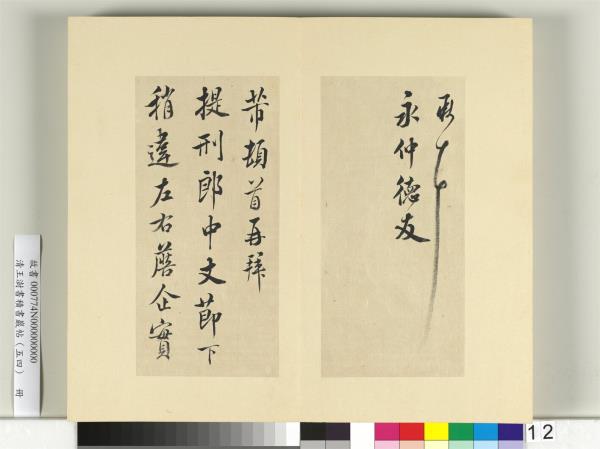 永仲德友
芾頓首再拜
提刑郎中文節下
稍違左右蔭企實
故書000774N000000000
清王澍書積書巖帖(五四) 冊
12